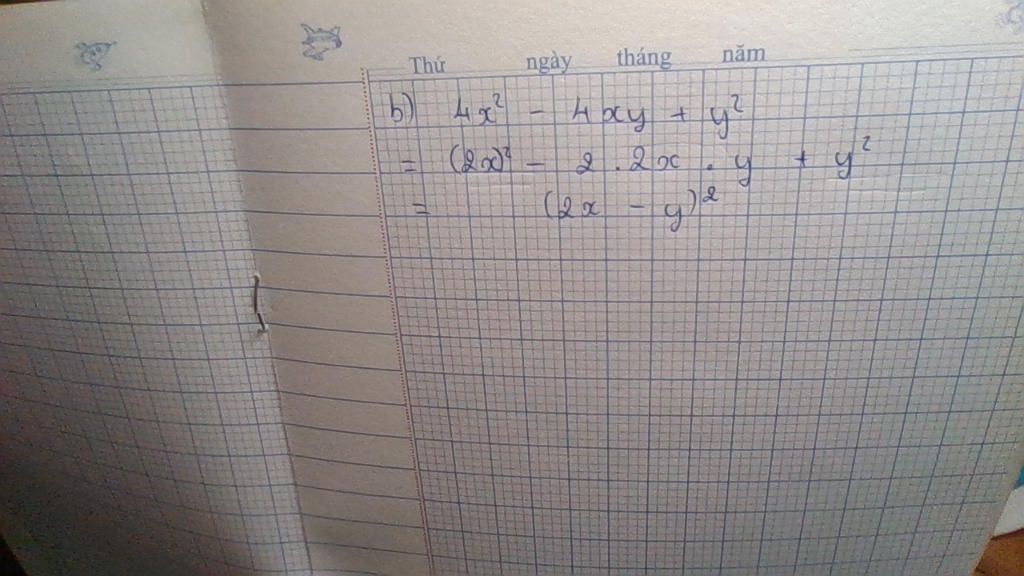 Thứ ngày tháng năm
b) 4x² - 4xy + y²
= (2x)² - 2 . 2x . y + y²
= (2x - y)²